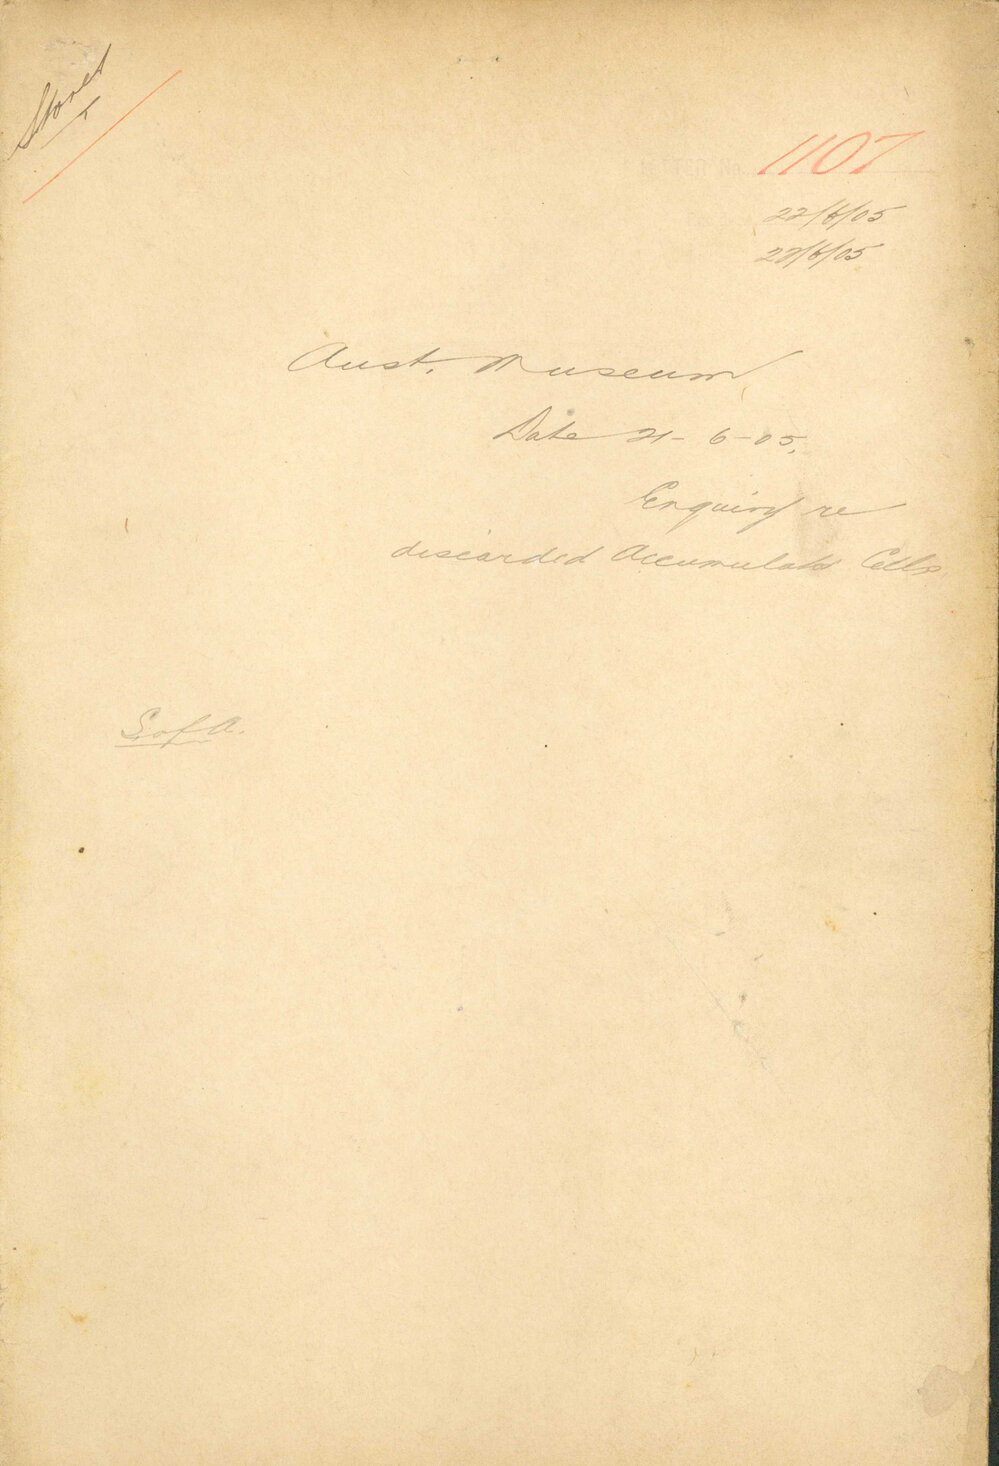 Stores
1107
22/6/05
22/6/05
Aust. Museum
Date 21-6-05.
Enquiry re
discarded Accumulator Cells
S. of A.